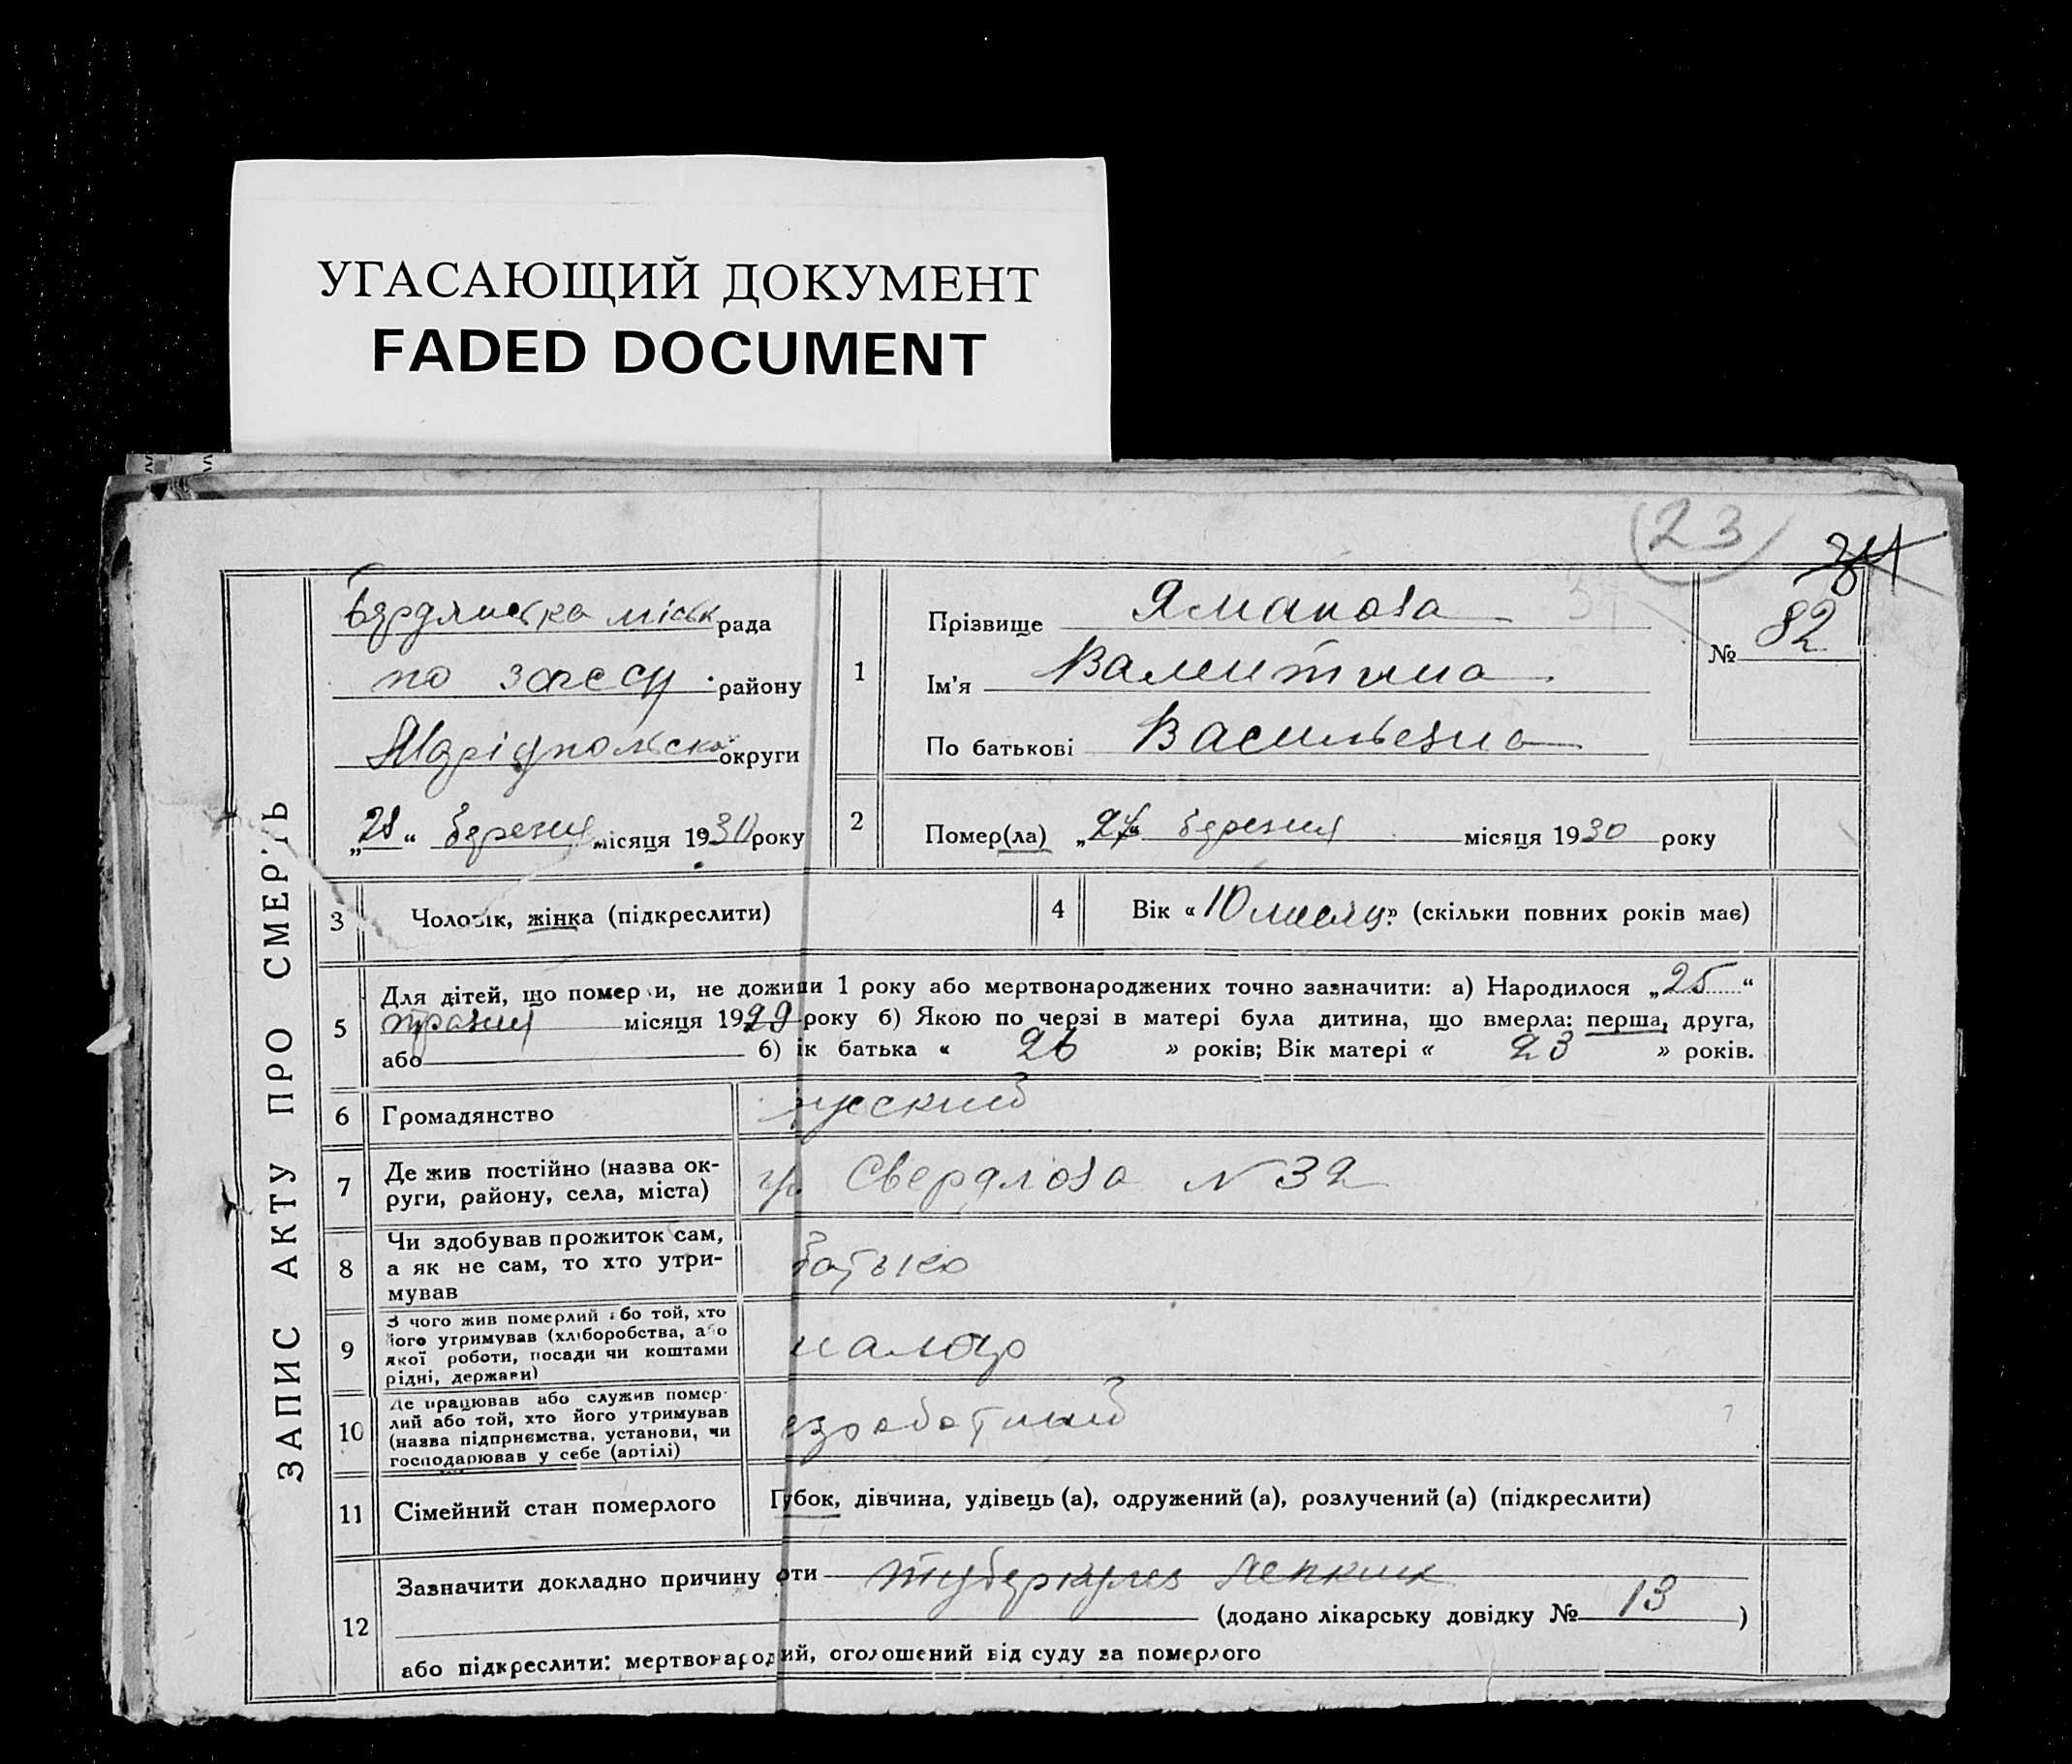 УГАСАЮЩИЙ ДОКУМЕНТ
FADED DOCUMENT
23
31
ЗАПИС АКТУ ПРО СМЕРТЬ
Бердянська міськ рада
по загсу району
Маріупольська округи
„28“ березня місяця 1930 року
1
Прізвище Яманова
Ім'я Валентина
По батькові Васильевна
№ 82
2
Помер(ла) „27“ березня місяця 1930 року
3 Чоловік, жінка (підкреслити)
4 Вік «10 месяц» (скільки повних років має)
5
Для дітей, що померли, не дожили 1 року або мертвонароджених точно зазначити: а) Народилося „25“
травня місяця 1929 року б) Якою по черзі в матері була дитина, що вмерла: перша, друга,
або б) ік батька « 26 » років; Вік матері « 23 » років.
6 Громадянство русский
7 Де жив постійно (назва ок-
руги, району, села, міста)
Свердлова N 32
8 Чи здобував прожиток сам,
а як не сам, то хто утри-
мував
батько
9 З чого жив померлий або той, хто
його утримував (хліборобства, або
якої роботи, посади чи коштами
рідні, держави)
маляр
10 Де працював або служив помер-
лий або той, хто його утримував
(назва підприємства, установи, чи
господарював у себе (артілі)
езработный
11 Сімейний стан померлого Губок, дівчина, удівець (а), одружений (а), розлучений (а) (підкреслити)
12
Зазначити докладно причину рти туберкулез легких
(додано лікарську довідку № 13 )
або підкреслити: мертвонародий, оголошений від суду за померлого